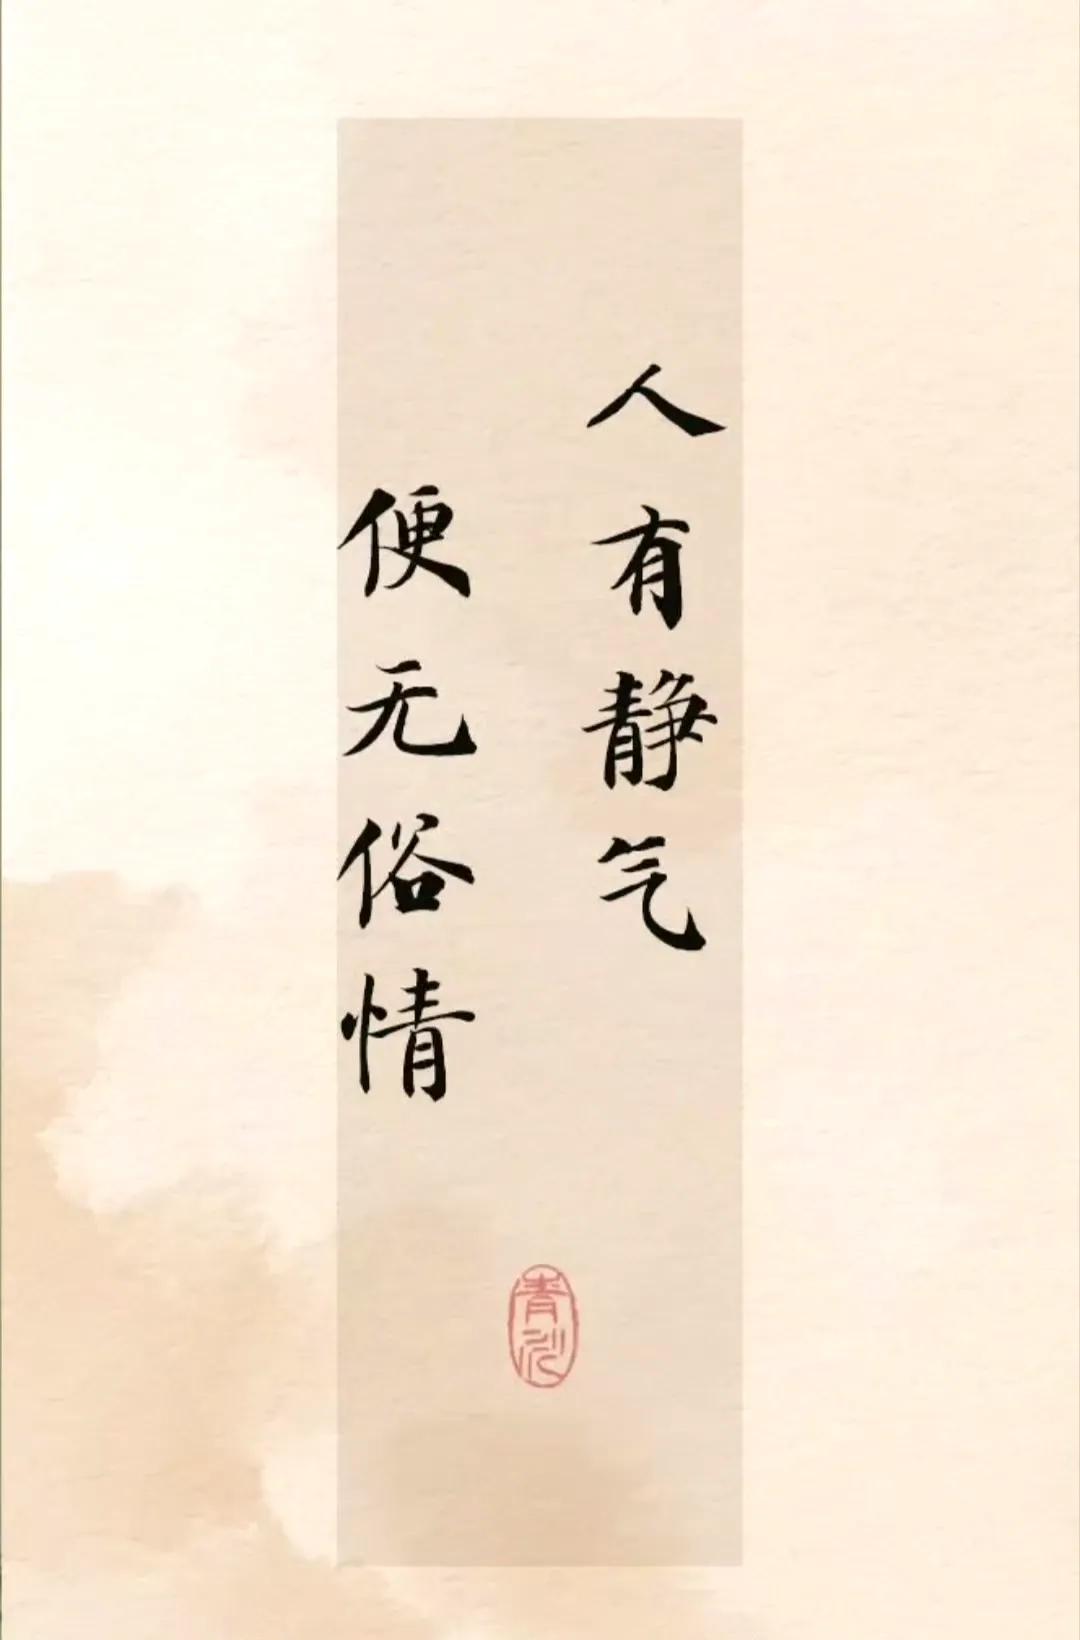 人有静气
便无俗情